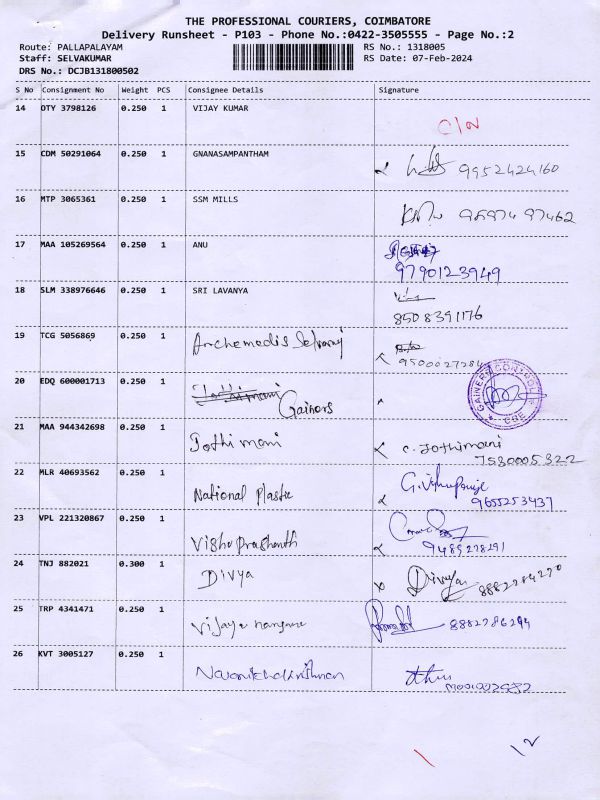 THE PROFESSIONAL COURIERS, COIMBATORE
Delivery Runsheet - P103 - Phone No.:0422-3505555 - Page No.:2
Route: PALLAPALAYAM RS No.: 1318005
Staff: SELVAKUMAR RS Date: 07-Feb-2024
DRS No.: DCJB131800502
S No Consignment No Weight PCS Consignee Details Signature
14 OTY 3798126 0.250 1 VIJAY KUMAR
15 CDM 50291064 0.250 1 GNANASAMPANTHAM
9952424160
16 MTP 3065361 0.250 1 SSM MILLS
97462
17 MAA 105269564 0.250 1 ANU
9790123949
18 SLM 338976646 0.250 1 SRI LAVANYA
8508391176
19 TCG 5056869 0.250 1
9500027284
20 EDQ 600001713 0.250 1 Gainers
GAINERS CONTROLS
CBE
21 MAA 944342698 0.250 1 Jothimani C. Jothimani
7530005322
22 MLR 40693562 0.250 1 National
9655253437
23 VPL 221320867 0.250 1 Vishu Prashanth
24 TNJ 882021 0.300 1 Divya Divya
25 TRP 4341471 0.250 1 Vijaya
26 KVT 3005127 0.250 1
12